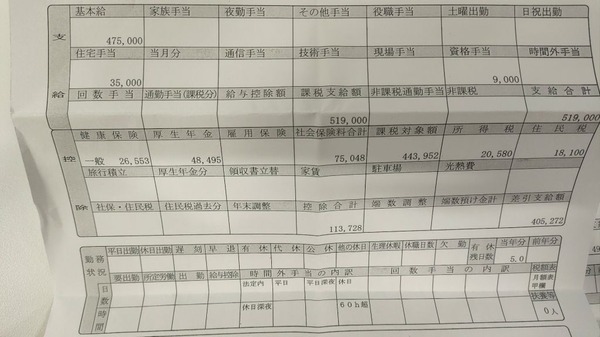 基本給 家族手当 夜勤手当 その他手当 役職手当 土曜出勤 日祝出勤
475,000
住宅手当 当月分 通信手当 技術手当 現場手当 資格手当 時間外手当
35,000 9,000
回数手当 通勤手当(課税分) 給与控除額 課税支給額 非課税通勤手当 非課税 支給合計
519,000 519,000
支給
健康保険 厚生年金 雇用保険 社会保険料合計 課税対象額 所得税 住民税
一般 26,553 48,495 75,048 443,952 20,580 18,100
旅行積立 厚生年金分 領収書立替 家賃 駐車場 光熱費
社保・住民税 住民税過去分 年末調整 控除合計 端数調整 端数預け合計 差引支給額
113,728 405,272
控除
勤務状況 平日出勤 休日出勤 遅刻 早退 有休 代休 公休 他の休日 生理休暇 休職日数 欠勤 有休残日数 当年分 前年分
5.0
要出勤 所定労働 出勤 給与控除 時間外手当の内訳 回数手当の内訳 税額表
日数 法定内 平日 平日深夜 休日 月額表
甲欄
時間 休日深夜 60h超 扶養等
0人